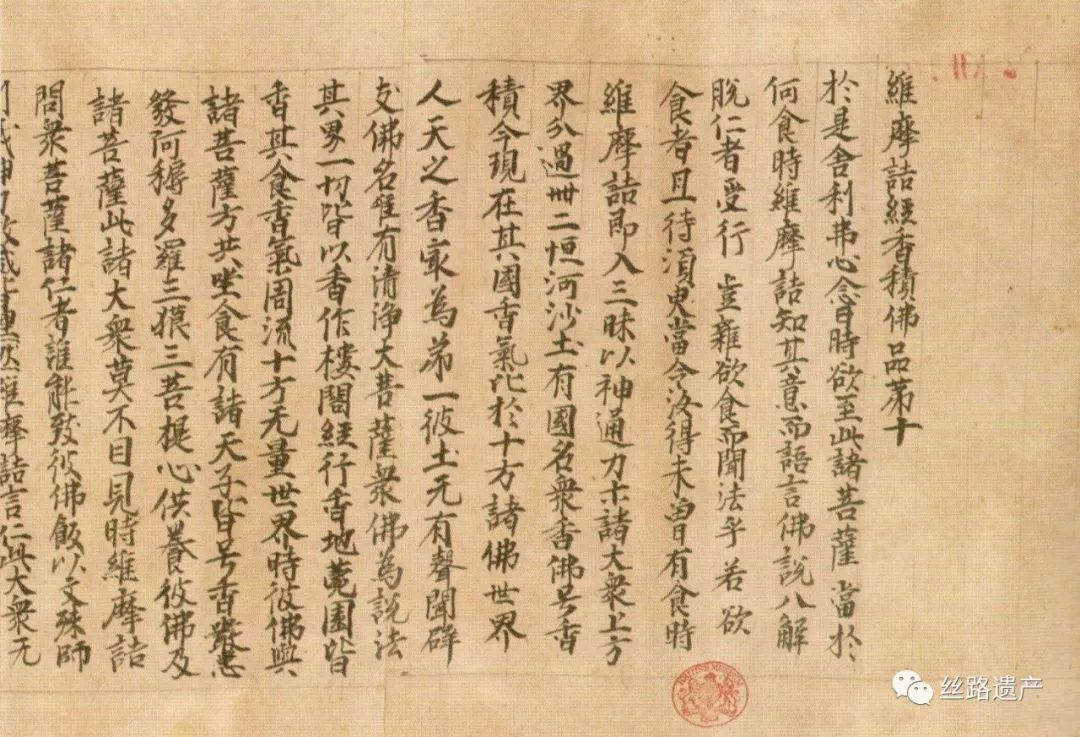 維摩詰經香積佛品第十
於是舍利弗心念日時欲至此諸菩薩當於
何食時維摩詰知其意而語言佛說八解
脫仁者受行豈雜欲食而聞法乎若欲
食者且待須臾當令汝得未曾有食時
維摩詰即入三昧以神通力示諸大衆上方
界分過卌二恒河沙土有國名衆香佛号香
積今現在其國香氣比於十方諸佛世界
人天之香冣為第一彼土无有聲聞辟
支佛名唯有清淨大菩薩衆佛為說法
其界一切皆以香作樓閣經行香地菀園皆
香其食香氣周流十方无量世界時彼佛與
諸菩薩方共坐食有諸天子皆号香嚴悉
發阿耨多羅三藐三菩提心供養彼佛及
諸菩薩此諸大衆莫不目見時維摩詰
問衆菩薩諸仁者誰能致彼佛飯以文殊師
維摩詰言仁此大衆无
BRITISH MUSEUM
丝路遗产